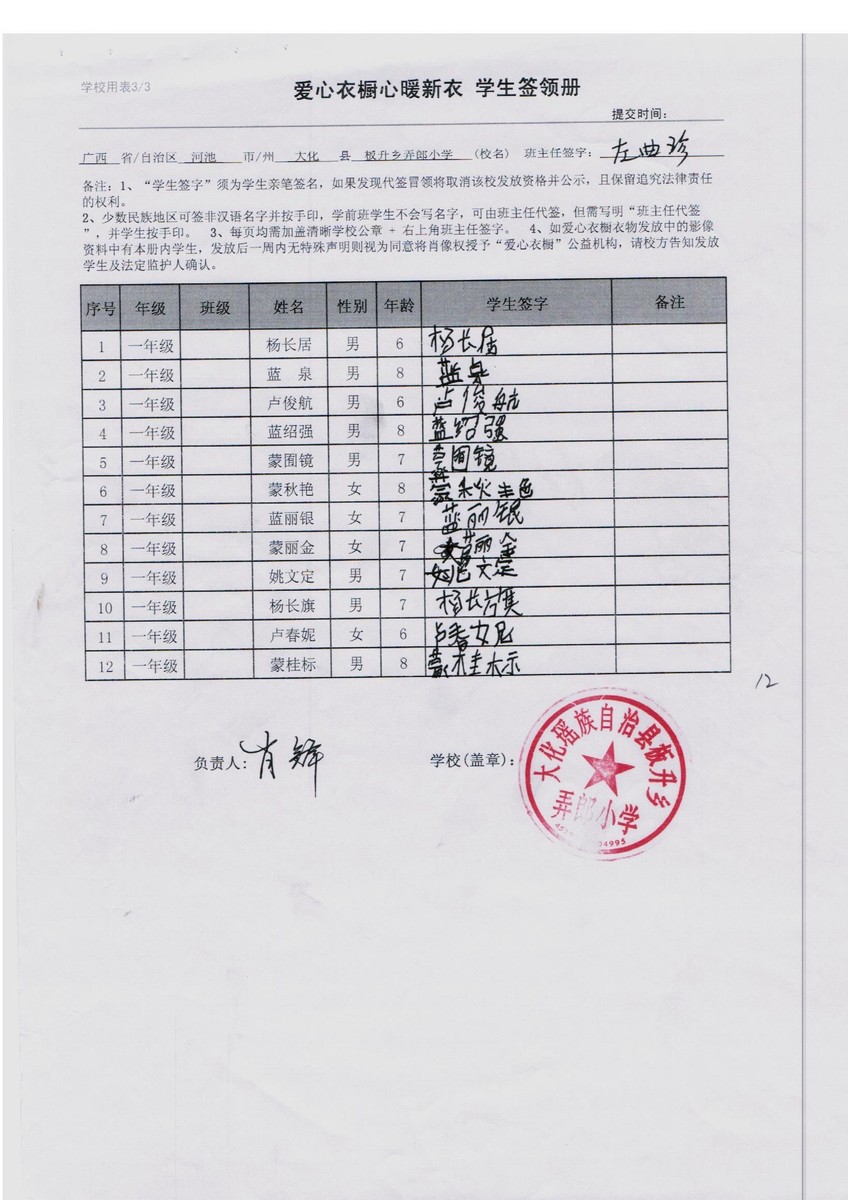 学校用表3/3
爱心衣橱心暖新衣 学生签领册
提交时间：
广西 省/自治区 河池 市/州 大化 县 板升乡弄郎小学 (校名) 班主任签字：
备注：1、“学生签字”须为学生亲笔签名，如果发现代签冒领将取消该校发放资格并公示，且保留追究法律责任
的权利。
2、少数民族地区可签非汉语名字并按手印，学前班学生不会写名字，可由班主任代签，但需写明“班主任代签
”，并学生按手印。 3、每页均需加盖清晰学校公章 + 右上角班主任签字。 4、如爱心衣橱衣物发放中的影像
资料中有本册内学生，发放后一周内无特殊声明则视为同意将肖像权授予“爱心衣橱”公益机构，请校方告知发放
学生及法定监护人确认。
序号 年级 班级 姓名 性别 年龄 学生签字 备注
1 一年级 杨长居 男 6 杨长居
2 一年级 蓝 泉 男 8 蓝泉
3 一年级 卢俊航 男 6 卢俊航
4 一年级 蓝绍强 男 8 蓝绍强
5 一年级 蒙囿镜 男 7 蒙囿镜
6 一年级 蒙秋艳 女 8 蒙秋艳
7 一年级 蓝丽银 女 7 蓝丽银
8 一年级 蒙丽金 女 7 蒙丽金
9 一年级 姚文定 男 7 姚文定
10 一年级 杨长旗 男 7 杨长旗
11 一年级 卢春妮 女 6 卢春妮
12 一年级 蒙桂标 男 8 蒙桂标
12
负责人：
学校(盖章)：
大化瑶族自治县板升乡
弄郎小学